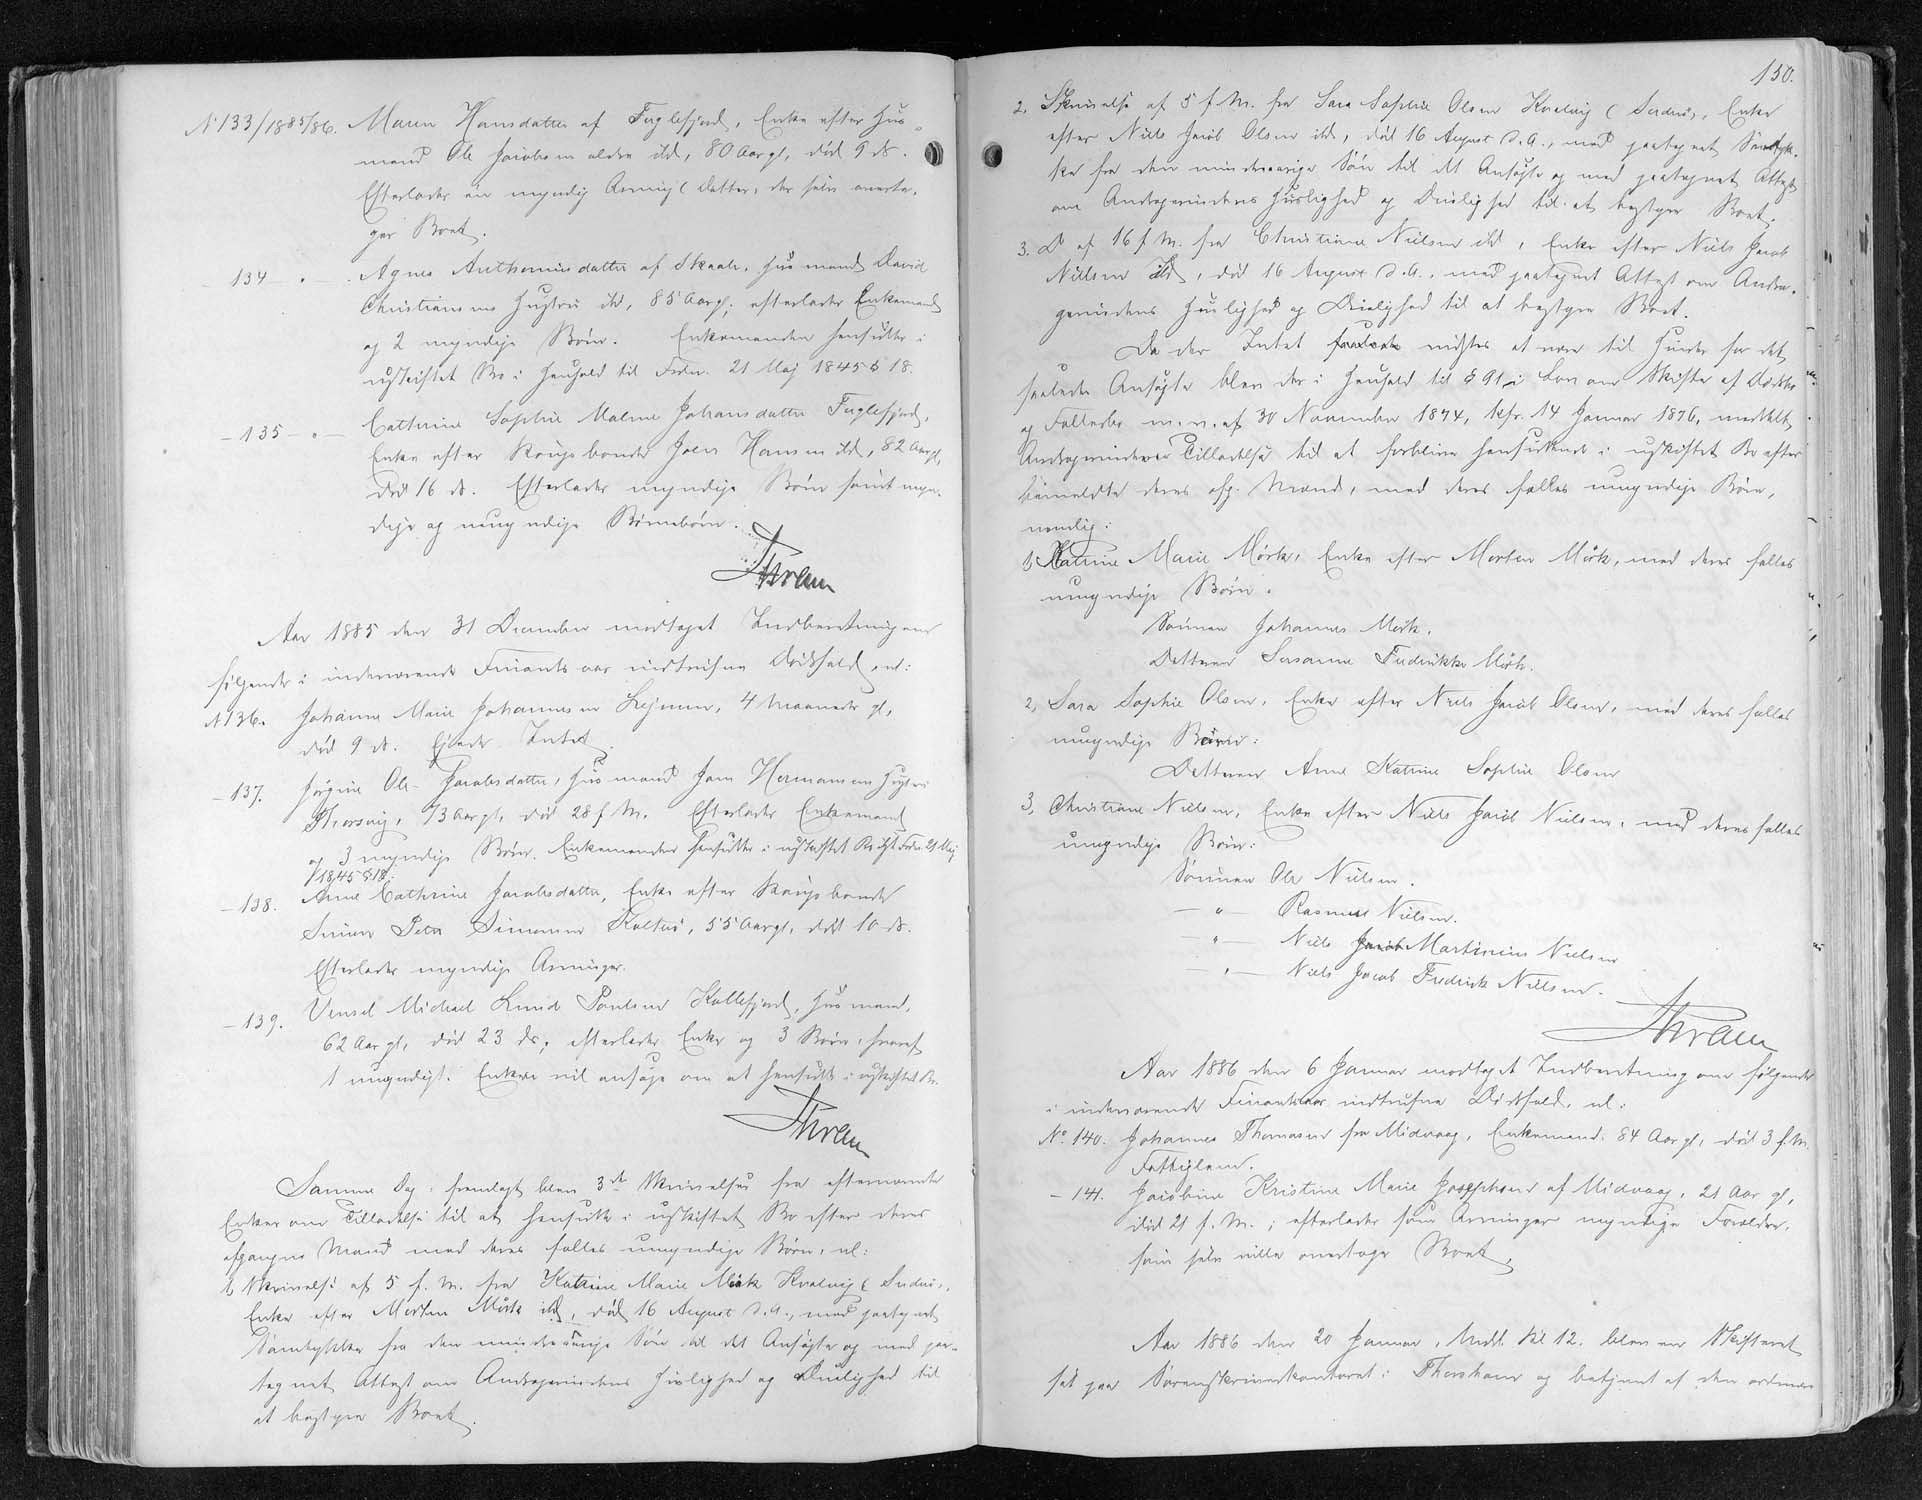 N 133/1885/86. Maren Hansdatter af Fuglefjord, Enke efter Hus-
mand Ole Jacobsen aldre ibd, 80 Aar gl, død 9 ds.
Efterlader en myndig Arving (Datter, der selv overta-
ger Boet.
134 — " — Agnes Anthoniusdatter af Skaale, Husmand David
Christiansens Hustru ibd, 85 Aar gl; efterlader Enkemand
og 2 myndige Børn. Enkemanden hensidder i
uskiftet Bo i Henhold til Frdn. 21 Maj 1845 § 18.
— 135 — " — Cathrine Sophie Malene Johansdatter Fuglefjord,
Enke efter Kongsbonde Joen Hansen ibd, 82 Aar gl,
død 16 ds. Efterlader myndige Børn samt myn-
dige og umyndige Børnebørn.
Thram
Aar 1885 den 31 December modtaget Indberetning om
følgende i indeværende Finantsaar indtrufne Dødsfald, nl:
N 136. Johanne Marie Johannesen Lejnum, 4 Maaneder gl,
død 9 ds. Ejede Intet.
— 137. Jørgine Ole Jacobsdatter, Husmand Joen Hermansens Hustru
Thorsvig, 73 Aar gl, død 28 f. M. Efterlader Enkemand
og 3 myndige Børn. Enkemanden hensidder i uskiftet Bo iflg. Frdn 21 Maj
1845 § 18.
— 138. Anne Cathrine Jacobsdatter, Enke efter Kongsbonde
Simon Peter Simonsen Kaltus, 55 Aar gl, død 10 ds.
Efterlader myndige Arvinger.
— 139. Vensel Michael Lund Poulsen Kollefjord, Husmand,
62 Aar gl, død 23 ds; efterlader Enke og 3 Børn, hvoraf
1 umyndigt. Enken vil ansøge om at hensidde i uskiftet Bo.
Thram
Samme Dag fremlagt blev 3de Skrivelser fra efternævnte
Enker om Tilladelse til at hensidde i uskiftet Bo efter deres
afgangne Mænd med deres fælles umyndige Børn, nl:
1, Skrivelse af 5 f. M. fra Katrine Marie Mörk Kvalvig (Suderö,
Enke efter Morten Mörk ibd, død 16 August d. A., med paategnet
Samtykke fra den mindreaarige Søn til det Ansøgte og med paa-
tegnet Attest om Andragerindens Huslighed og Duelighed til
at bestyre Boet.
150.
2, Skrivelse af 5 f. M. fra Sara Sophie Olsen Kvalvig (Suderö, Enke
efter Niels Jacob Olsen ibd, død 16 August d. A., med paategnet Samtyk-
ke fra den mindreaarige Søn til det Ansøgte og med paategnet Attest
om Andragerindens Huslighed og Duelighed til at bestyre Boet.
3. Do af 16 f. M. fra Christiane Nielsen ibd, Enke efter Niels Jacob
Nielsen ibd, død 16 August d. A., med paategnet Attest om Andra-
gerindens Huslighed og Duelighed til at bestyre Boet.
Da der Intet vidstes at være til Hinder for det
saaledes Ansøgte blev der i Henhold til § 91 i Lov om Skifte af Dødsbo
og Fællesbo m. v. af 30 November 1874, kfr. 14 Januar 1876, meddelt
Andragerinderne Tilladelse til at forblive hensiddende i uskiftet Bo efter
bemeldte deres afg. Mænd, med deres fælles umyndige Børn,
nemlig:
1, Katrine Marie Mörk, Enke efter Morten Mörk, med deres fælles
umyndige Børn:
Sønnen Johannes Mörk.
Datteren Susanne Fredrikke Mörk.
2, Sara Sophie Olsen, Enke efter Niels Jacob Olsen, med deres fælles
umyndige Børn:
Datteren Anne Katrine Sophie Olsen
3, Christiane Nielsen, Enke efter Niels Jacob Nielsen, med deres fælles
umyndige Børn:
Sønnen Ole Nielsen.
— " — Rasmus Nielsen.
— " — Niels Jacob Martinius Nielsen
— " — Niels Jacob Fredrik Nielsen.
Thram
Aar 1886 den 6 Januar modtaget Indberetning om følgende
i indeværende Finantsaar indtrufne Dødsfald, nl:
No. 140. Johannes Thomasen fra Midvaag, Enkemand, 84 Aar gl, død 3 f. M.
Fattiglem.
— 141. Jacobine Kristine Marie Josephsen af Midvaag, 21 Aar gl,
død 21 f. M.; efterlader som Arvinger myndige Forældre,
som selv ville overtage Boet.
Aar 1886 den 20 Januar, Midd. Kl 12. blev en Skifteret
sat paa Sorenskriverkontoret i Thorshavn og betjent af den ordinære